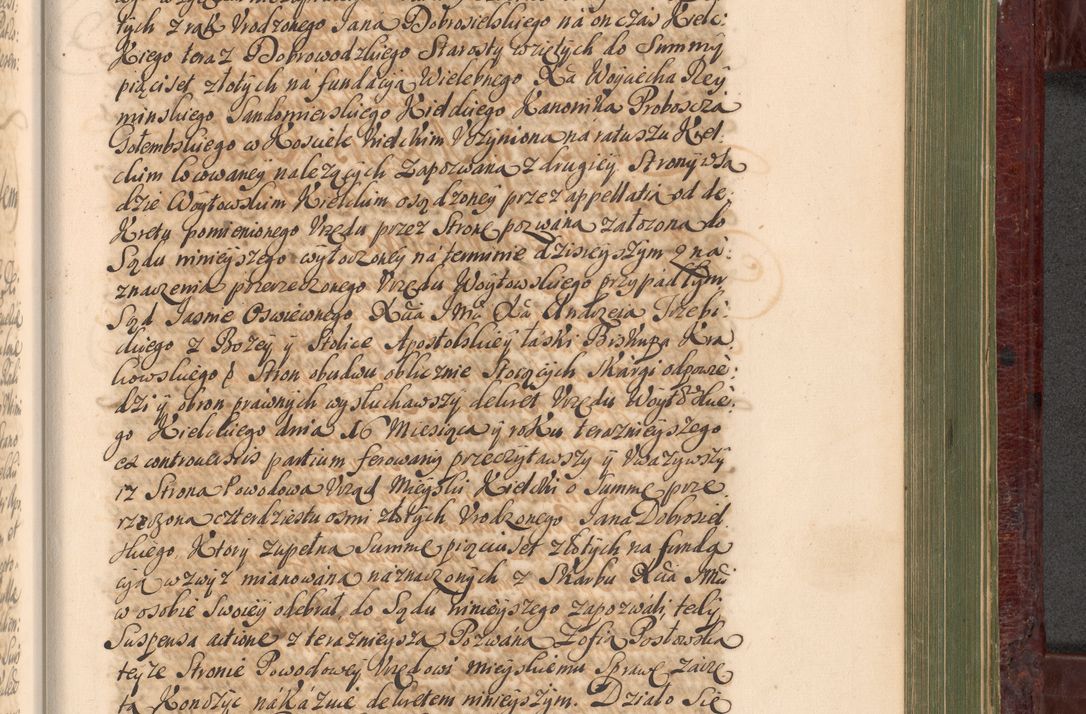 tych z rąk Urodzonego Jana Dobrosielskiego na on czas Kielc:
kiego teraz Dobrowodzkiego Starosty wziętych do Summy
pięciset złotych na fundacją Wielebnego Xa Woyciecha Rey
minskiego Sandomierskiego Kielckiego Kanonika Proboscza
Gołembskiego w Kosciele Kielckim Uczyniona na ratuszu Kiel
ckim locowaney należących Zapozwana z drugiey Strony w Są
dzie Woytowskim Kielckim osądzoney przez appellatią od de:
kretu pomienionego Urzędu przez Stronę pozwaną założona do
Sądu ninieyszego wytoczoney na terminie dzisieyszym z na:
znaczenia przerzeczonego Urzędu Woytowskiego przypadłym
Sąd Jasnie Oswieconego Xcia JMci Xa Andrzeia Trzebi:
ckiego z Bożey y Stolice Apostolskiey łaski Biskupa Kra
kowskiego Stron obudwu oblicznie Stoiących Skargi odpowie:
dzi y obron prawnych wysłuchawszy dekret Urzędu Woytowskie
go Kielckiego dnia 16 Miesiąca y roku terazniejszego
ex controversiis partium ferowany przeczytawszy y Uważywszy
iż Strona Powodowa Urząd Mieyski Kielcki o Summę prze
rzeczoną czterdziestu osmi złotych Urodzonego Jana Dobrosiel
skiego, Który zupełną Summę pięciuset złotych na funda
cją wzwyż mianowaną naznaczonych z Skarbu Xcia JMci
w osobie Swoiey odebrał, do Sądu ninieyszego zapozwali, tedy
Suspensa actione z teraznieyszą Pozwaną Zofią Postowską
teyże Stronie Powodowey Urzędowi mieyskiemu Sprawę zaczę
tą Kończyc nakazuie dekretem ninieyszym. Działo Się